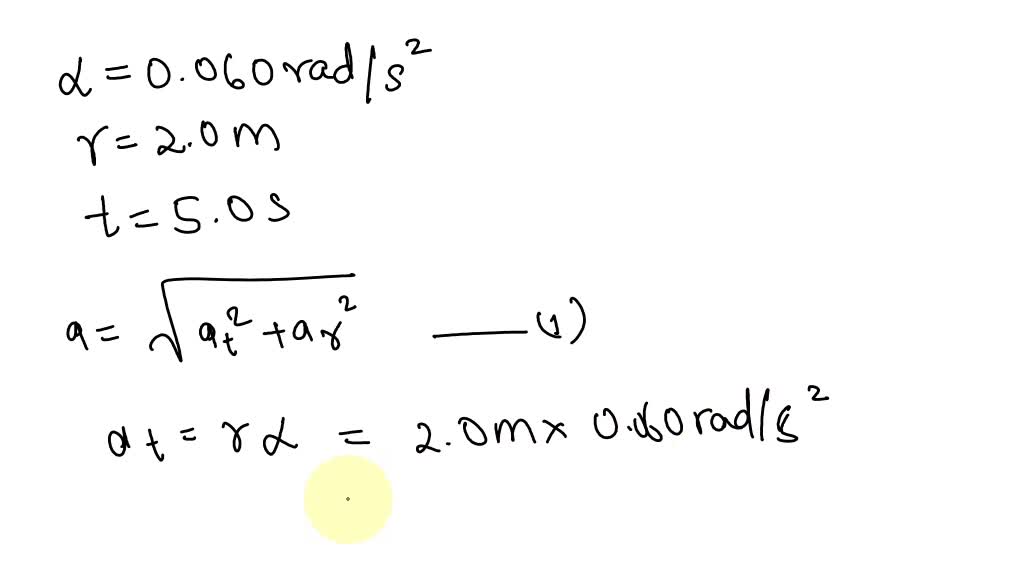 α = 0.060 rad/s²
r = 2.0 m
t = 5.0 s
a = √(a_t² + a_r²) —— (1)
a_t = rα = 2.0m × 0.060 rad/s²